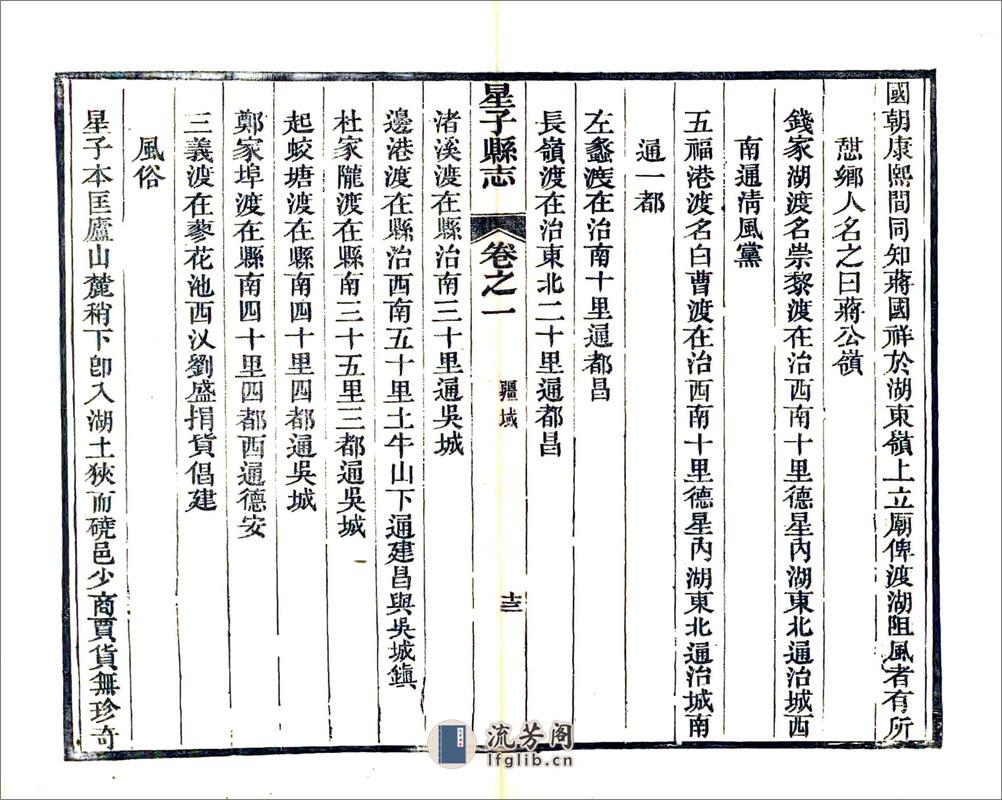 國朝康熙間同知蔣國祥於湖東嶺上立廟俾渡湖阻風者有所
憇鄉人名之曰蔣公嶺
錢家湖渡名崇黎渡在治西南十里德星內湖東北通治城西
南通清風黨
五福港渡名白曹渡在治西南十里德星內湖東北通治城南
通一都
左蠡渡在治南十里通都昌
長嶺渡在治東北二十里通都昌
星子縣志
卷之一
疆域
十三
渚溪渡在縣治南三十里通吳城
邊港渡在縣治西南五十里土牛山下通建昌與吳城鎮
杜家隴渡在縣南三十五里三都通吳城
起蛟塘渡在縣南四十里四都通吳城
鄭家埠渡在縣南四十里四都西通德安
三義渡在蓼花池西汊劉盛捐貲倡建
風俗
星子本匡廬山麓稍下卽入湖土狹而磽邑少商賈貨無珍奇
流芳阁
lfglib.cn